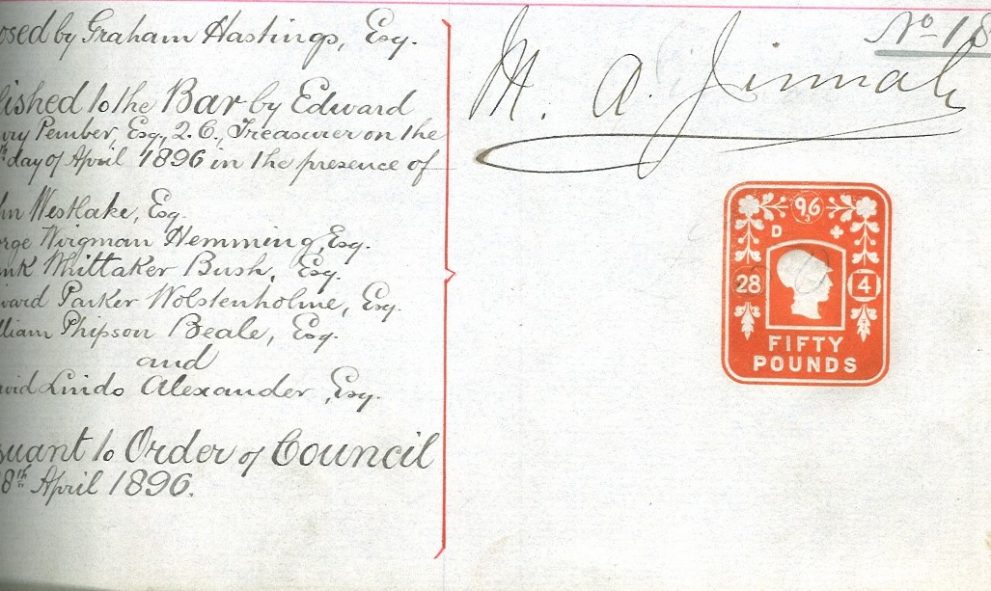 osed by Graham Hastings, Esq.
lished to the Bar by Edward
nry Pember, Esq., Q. C., Treasurer on the
th day of April 1896 in the presence of
hn Westlake, Esq.
orge Wirgman Hemming, Esq.
ank Whittaker Bush, Esq.
ward Parker Wolstenholme, Esq.
lliam Phipson Beale, Esq.
and
avid Lindo Alexander, Esq.
suant to Order of Council
28th April 1896.
No 18
M. A. Jinnah
96
D
28
4
FIFTY
POUNDS